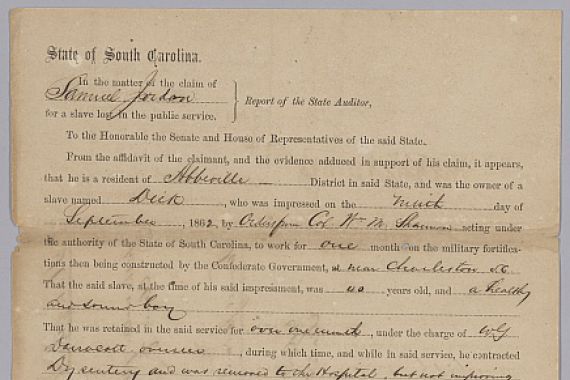 State of South Carolina.
In the matter of the claim of
Samuel Jordon
for a slave lost in the public service.
Report of the State Auditor,
To the Honorable the Senate and House of Representatives of the said State.
From the affidavit of the claimant, and the evidence adduced in support of his claim, it appears,
that he is a resident of Abbeville District in said State, and was the owner of a
slave named Dick, who was impressed on the day of
September, 1862, by Orders from Col Wm M. Shannon acting under
the authority of the State of South Carolina, to work for one month on the military fortifica-
tions then being constructed by the Confederate Government, at near Charleston S.C.
That the said slave, at the time of his said impressment, was years old, and a healthy
and sound boy
That he was retained in the said service for over one month, under the charge of WG
, during which time, and while in said service, he contracted
Dysentery and was removed to the Hospital, but not improving